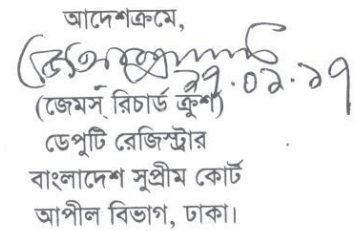 আদেশক্রমে,
২৭.০২.১৭
(জেমস্ রিচার্ড ক্রুশ)
ডেপুটি রেজিস্ট্রার
বাংলাদেশ সুপ্রীম কোর্ট
আপীল বিভাগ, ঢাকা।